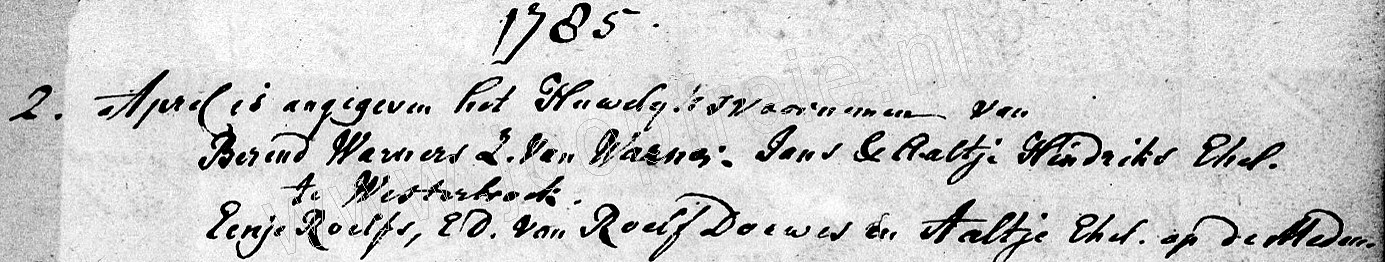 1785.
2. April is angegeven het Huwelyksvoornemen van
Berend Warners Z. van Warner Jans & Aaltje Hindriks Ehel.
te Westerbroek.
Eenje Roelfs, E D. van Roelf Douwes en Aaltje Ehel. op de Meden